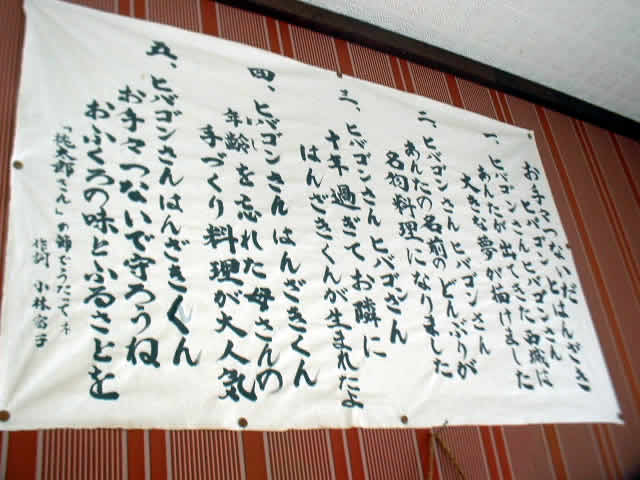 お手々つないだ
ヒバゴンとはんざき
一、ヒバゴンさんヒバゴンさん
あんたが出てきた西城は
大きな夢が描けました
二、ヒバゴンさんヒバゴンさん
あんたの名前のどんぶりが
名物料理になりました
三、ヒバゴンさんヒバゴンさん
十年過ぎてお隣に
はんざきくんが生まれたよ
四、ヒバゴンさんはんざきくん
年齢を忘れた母さんの
手づくり料理が大人気
五、ヒバゴンさんはんざきくん
お手々つないで守ろうね
おふくろの味とふるさとを
「桃太郎さん」の節でうたってネ
作詞 小林富子